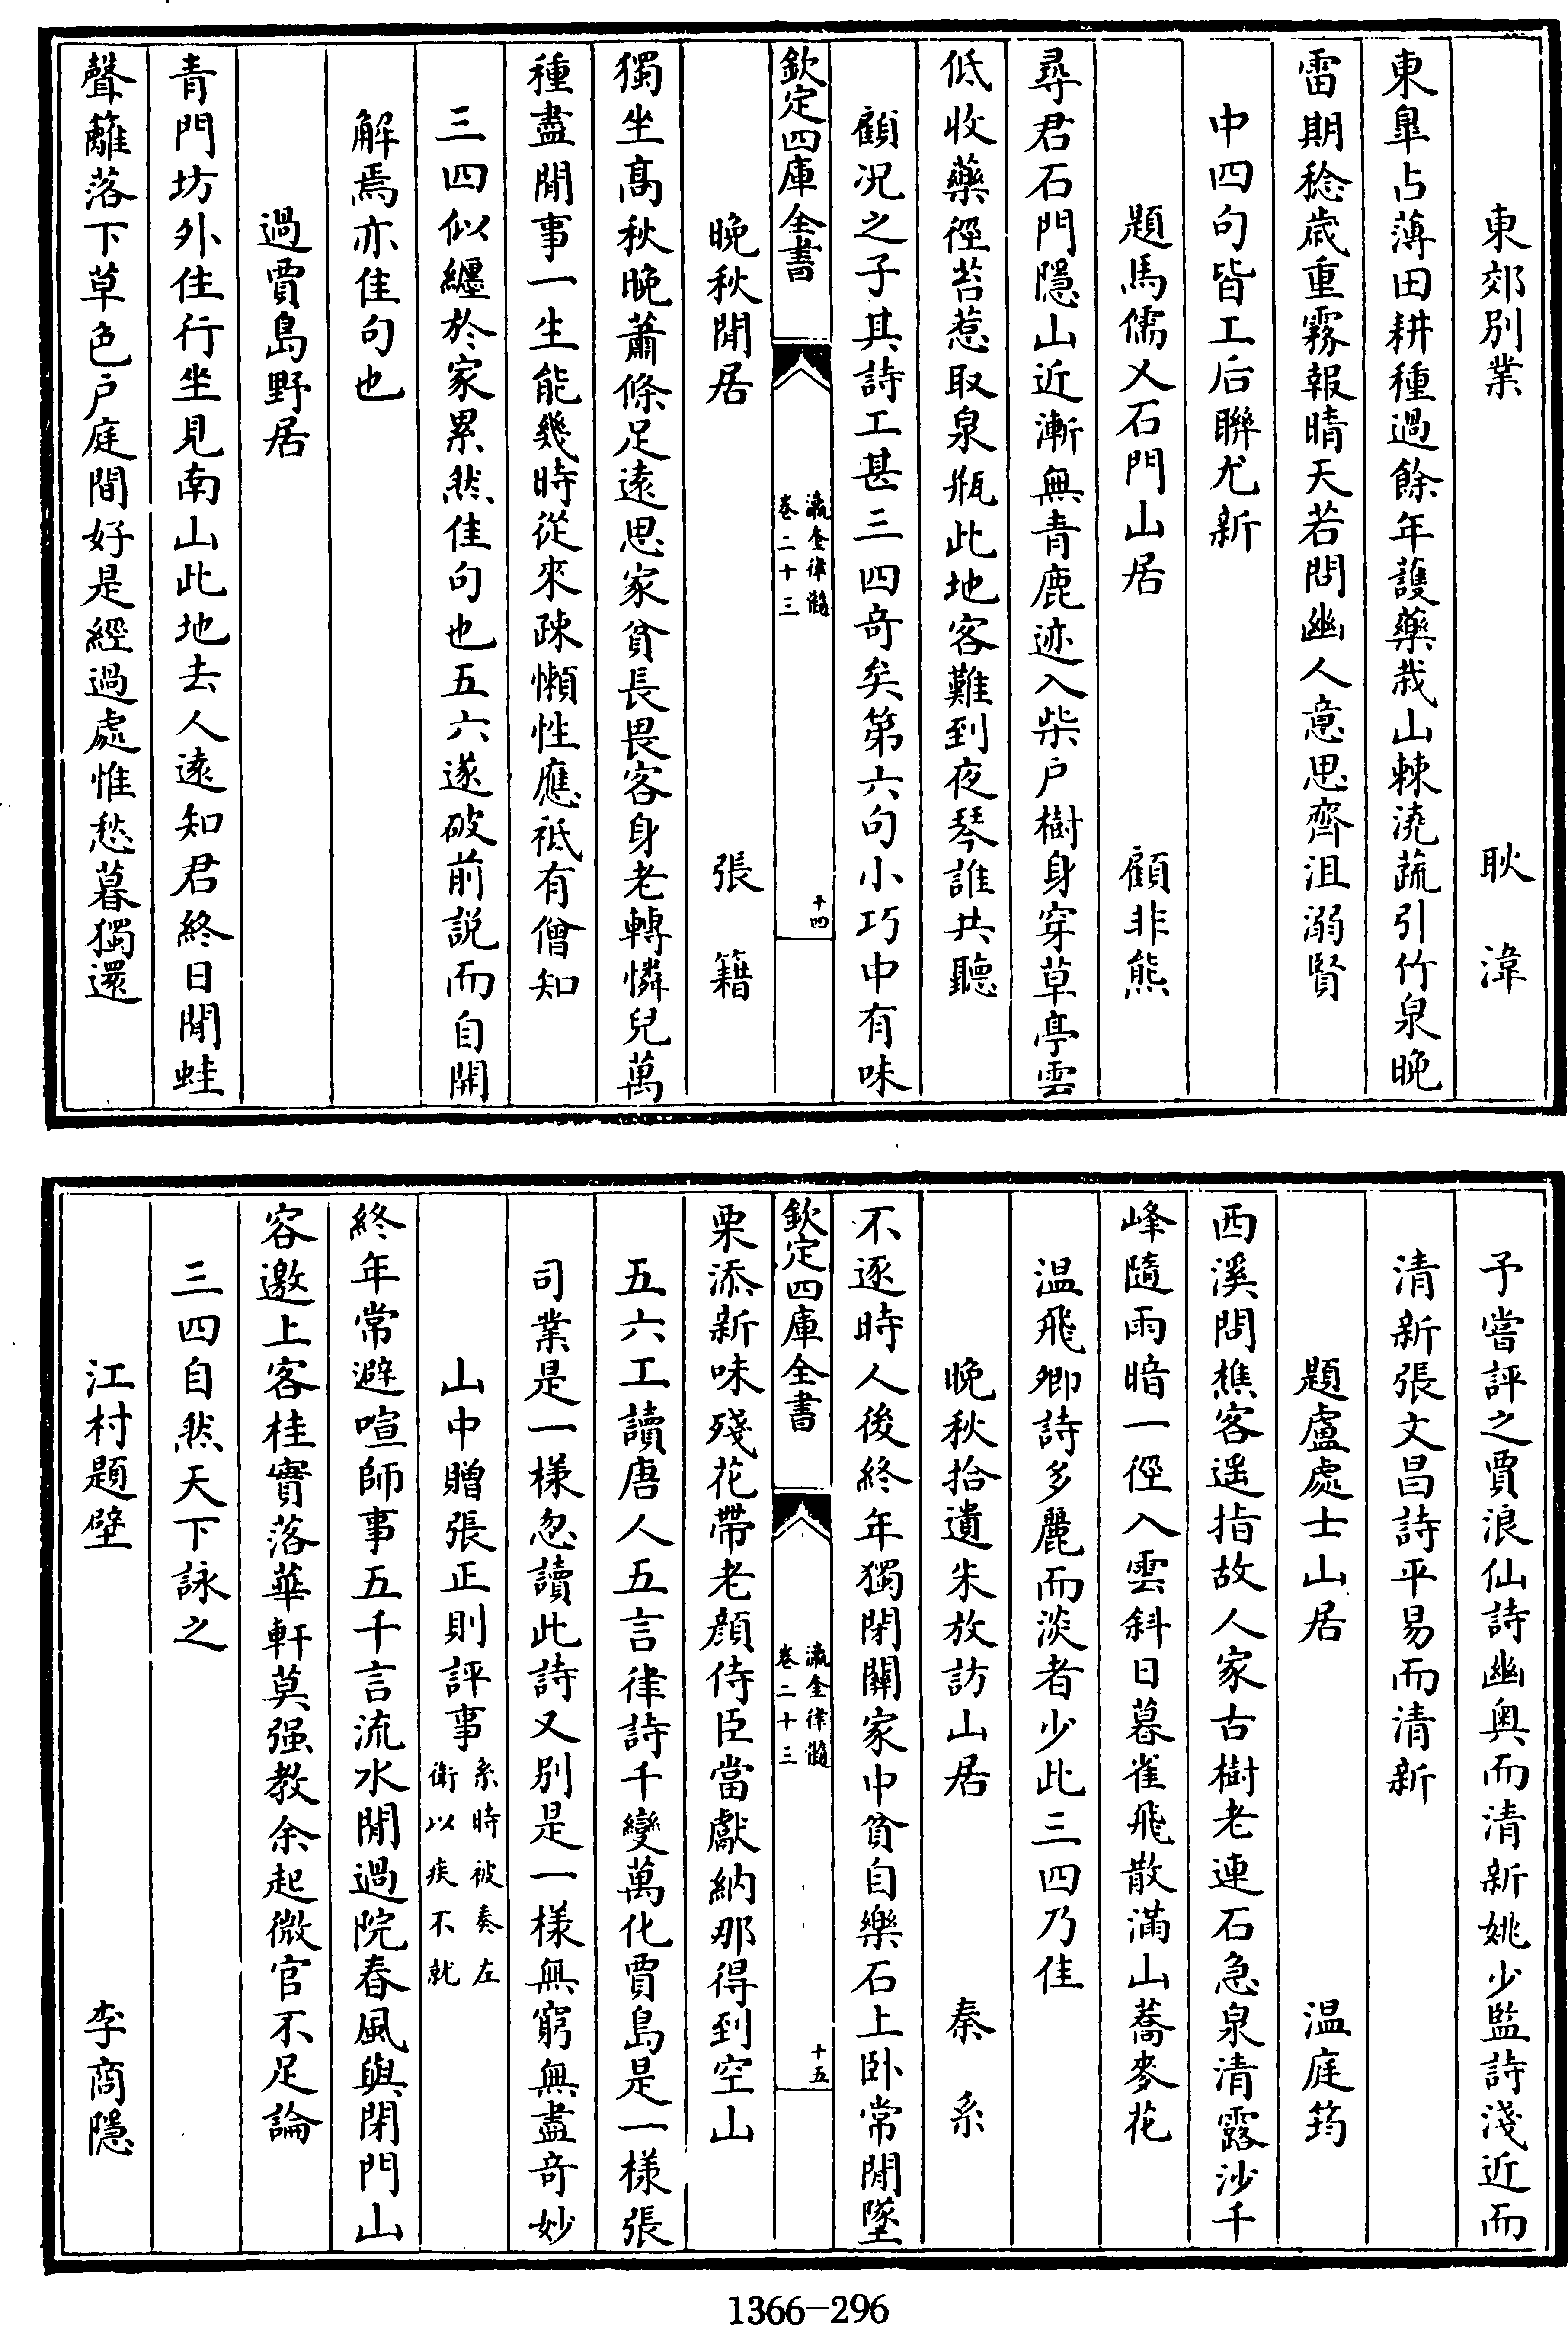 東郊別業　耿湋
東臯占薄田耕種過餘年護藥栽山棘澆蔬引竹泉晚
雷期稔歲重霧報晴天若問幽人意思齊沮溺賢
中四句皆工后聯尤新
題馬儒乂石門山居　顧非熊
尋君石門隱山近漸無青鹿迹入柴户樹身穿草亭雲
低收藥徑苔惹取泉瓶此地客難到夜琴誰共聽
顧况之子其詩工甚三四奇矣第六句小巧中有味
欽定四庫全書
瀛奎律髓
卷二十三
十四
晚秋閒居　張籍
獨坐髙秋晚蕭條足遠思家貧長畏客身老轉憐兒萬
種盡閒事一生能幾時從來疎懶性應祗有僧知
三四似纒於家累然佳句也五六遂破前説而自開
解焉亦佳句也
過賈島野居
青門坊外住行坐見南山此地去人遠知君終日閒蛙
聲籬落下草色户庭間好是經過處惟愁暮獨還
予嘗評之賈浪仙詩幽奥而清新姚少監詩淺近而
清新張文昌詩平易而清新
題盧處士山居　温庭筠
西溪問樵客遥指故人家古樹老連石急泉清露沙千
峰隨雨暗一徑入雲斜日暮雀飛散滿山蕎麥花
温飛卿詩多麗而淡者少此三四乃佳
晚秋拾遺朱放訪山居　秦系
不逐時人後終年獨閉關家中貧自樂石上卧常閒墜
欽定四庫全書
瀛奎律髓
卷二十三
十五
栗添新味殘花帶老顔侍臣當獻納那得到空山
五六工讀唐人五言律詩千變萬化賈島是一樣張
司業是一樣忽讀此詩又別是一樣無窮無盡奇妙
山中贈張正則評事系時被奏左
衛以疾不就
終年常避喧師事五千言流水閒過院春風與閉門山
容邀上客桂實落華軒莫强教余起微官不足論
三四自然天下詠之
江村題壁　李商隱
1366-296